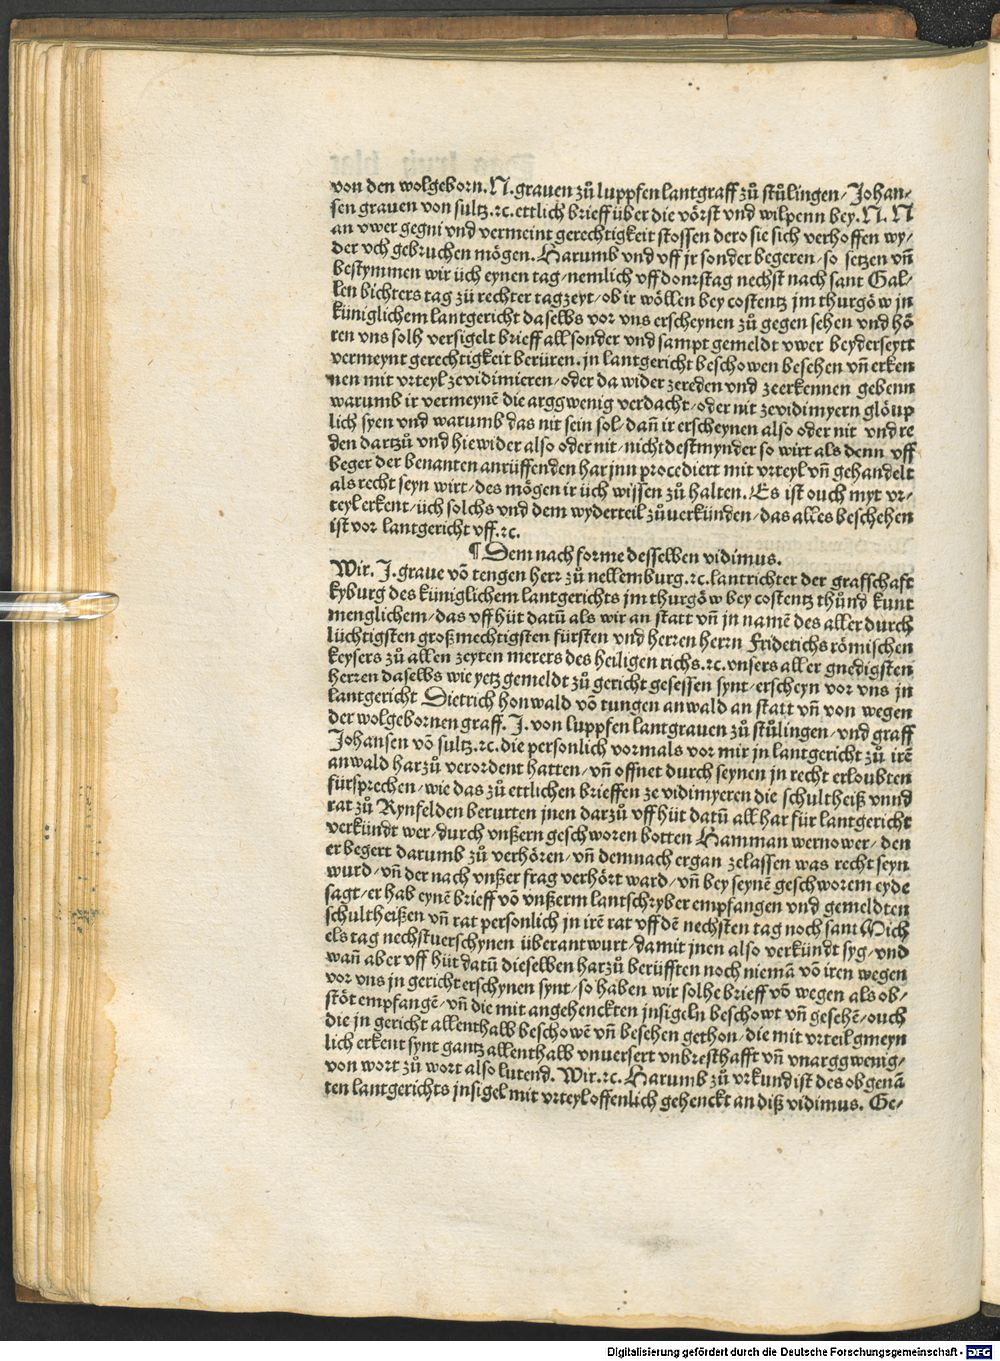 von den wolgeborn. N. grauen zů luppfen lantgraff zů stůlingen/ Johan-
sen grauen von sultz. ⁊c. ettlich brieff über die vörst vnd wilpenn bey. N. N
an vwer gegni vnd vermeint gerechtigkeit stossen dero sie sich verhoffen wy/
der vch gebruchen mögen. Harumb vnd vff jr sonder begeren/ so setzen vñ
bestymmen wir üch eynen tag/ nemlich vff donrstag nechst nach sant Gal-
len bichters tag zů rechter tagzeyt/ ob ir wöllen bey costentz jm thurgöw jn
küniglichem lantgericht daselbs vor vns erscheynen zů gegen sehen vnd hö
ren vns solh versigelt brieff all sonder vnd sampt gemeldt vwer beyderseytt
vermeynt gerechtigkeit berüren. jn lantgericht beschowen besehen vñ erken
nen mit vrteyl ze vidimieren/ oder da wider ze reden vnd ze erkennen gebenn
warumb ir vermeynē die arggwenig verdacht/ oder nit ze vidimyern glöup
lich syen vnd warumb das nit sein sol/ dañ ir erscheynen also oder nit vnd re
den dartzů vnd hie wider also oder nit/ nicht destmynder so wirt als denn vff
beger der benanten anrüffenden har jnn procediert mit vrteyl vñ gehandelt
als recht seyn wirt/ des mögen ir üch wissen zů halten. Es ist ouch myt vr-
teyl erkent/ üch solchs vnd dem wyderteil zů verkünden/ das alles beschehen
ist vor lantgericht vff. ⁊c.
¶ Dem nach forme desselben vidimus.
Wir. J. graue vō tengen herr zů nellemburg. ⁊c. lantrichter der grafschaft
kyburg des küniglichem lantgerichts jm thurgöw bey costentz thůnd kunt
menglichem/ das vff hüt datū als wir an statt vñ jn namē des aller durch
lüchtigsten großmechtigsten fürsten vnd herren herrn Friderichs römischen
keysers zů allen zeyten merers des heiligen richs. ⁊c. vnsers aller gnedigsten
herren daselbs wie yetz gemeldt zů gericht gesessen synt/ erscheyn vor vns jn
lantgericht Dietrich honwald vō tungen anwald an statt vñ von wegen
der wolgebornen graff. J. von luppfen lantgrauen zů stůlingen/ vnd graff
Johansen vō sultz. ⁊c. die personlich vormals vor mir jn lantgericht zů irē
anwald harzů verordent hatten/ vñ offnet durch seynen jn recht erloubten
fürsprechen/ wie das zů ettlichen brieffen ze vidimyeren die schultheiß vnnd
rat zů Rynfelden berurten jnen darzů vff hüt datū all har für lantgericht
verkündt wer/ durch vnßern geschworen botten Hamman wernower/ den
er begert darumb zů verhören/ vñ demnach ergan ze lassen was recht seyn
wurd/ vñ der nach vnßer frag verhört ward/ vñ bey seynē geschworem eyde
sagt/ er hab eynē brieff vō vnßerm lantschryber empfangen vnd gemeldten
schultheißen vñ rat personlich jn irē rat vff dē nechsten tag noch sant Mich
els tag nechstuerschynen überantwurt/ damit jnen also verkündt syg/ vnd
wañ aber vff hüt datū dieselben harzů berüfften noch niemā vō iren wegen
vor vns jn gericht erschynen synt/ so haben wir solhe brieff vō wegen als ob/
stöt empfangē/ vñ die mit angehenckten jnsigeln beschowt vñ gesehē/ ouch
die jn gericht allenthalb beschowē vñ besehen gethon/ die mit vrteil gmeyn
lich erkent synt gantz allenthalb vnuersert vnbresthafft vñ vnarggwenig/
von wort zů wort also lutend. Wir. ⁊c. Harumb zů vrkund ist des obgenā
ten lantgerichts jnsigel mit vrteyl offenlich gehenckt an diß vidimus. Ge-
Digitalisierung gefördert durch die Deutsche Forschungsgemeinschaft - DFG